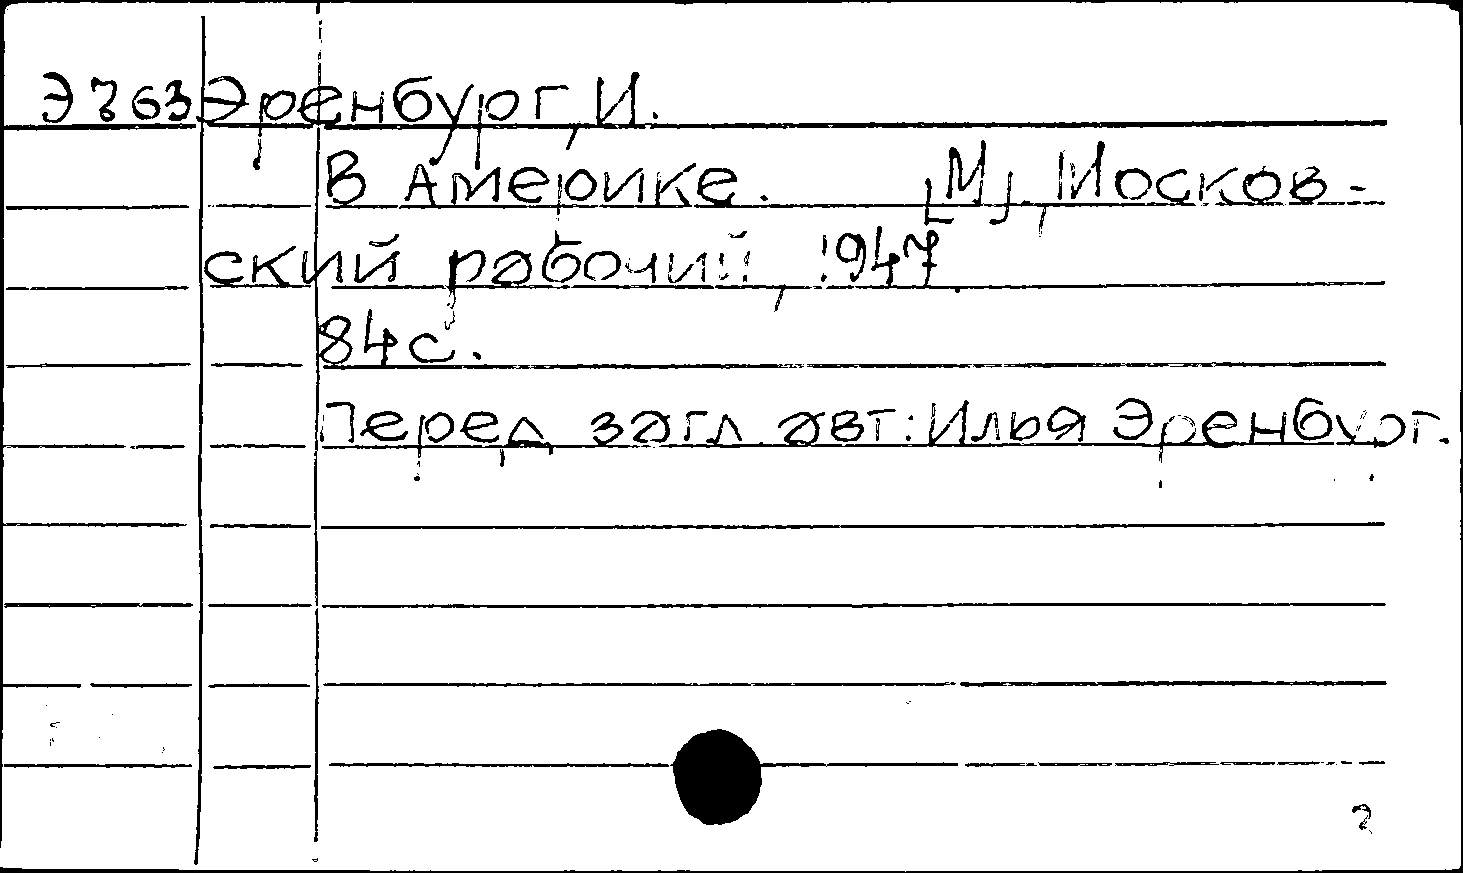 Э363 Эренбург, И.
В Америке. [М], Москов-
ский рабочий, 1947.
84 с.
Перед загл. авт.: Илья Эренбург.
2